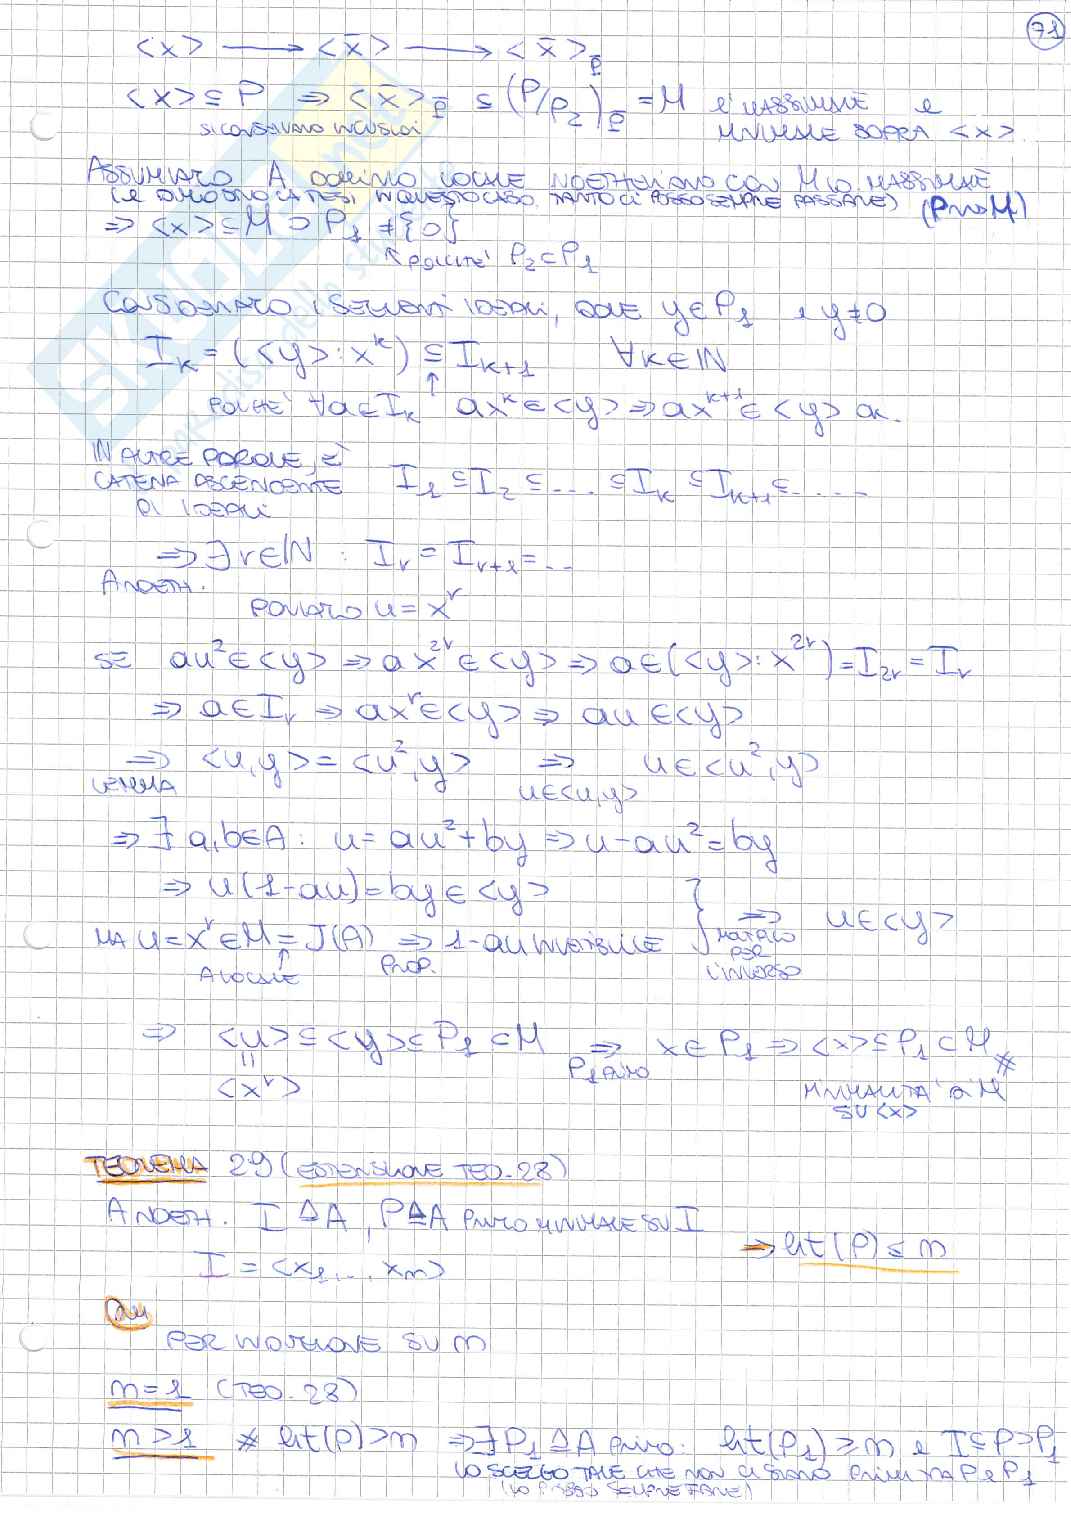 71
<x> ⟶ <x̄> ⟶ <x̄>_P̄
<x> ⊆ P ⇒ <x̄>_P̄ ⊆ (P/P₂)_P̄ = M È MASSIMALE e
SI CONSERVANO INCLUSIONI MINIMALE SOPRA <x>.
ASSUMIAMO A DOMINIO LOCALE NOETHERIANO CON M id. MASSIMALE
(E DIMOSTRO LA TESI IN QUESTO CASO. TANTO CI POSSO SEMPRE PASSARE) (P ⇝ M)
⇒ <x> ⊆ M ⊃ P₁ ≠ {0}
↖ POICHÉ P₂ ⊂ P₁
CONSIDERIAMO I SEGUENTI IDEALI, DOVE y ∈ P₁ e y ≠ 0
I_k = (<y> : x^k) ⊆ I_{k+1} ∀k ∈ ℕ
POICHÉ ∀a ∈ I_k ax^k ∈ <y> ⇒ ax^{k+1} ∈ <y> ok.
IN ALTRE PAROLE, È
CATENA ASCENDENTE I₁ ⊆ I₂ ⊆ .... ⊆ I_k ⊆ I_{k+1} ⊆ .....
DI IDEALI
⇒ ∃ r ∈ ℕ : I_r = I_{r+1} = ...
A NOETH.
PONIAMO u = x^r
SE au² ∈ <y> ⇒ ax^{2r} ∈ <y> ⇒ a ∈ (<y> : x^{2r}) = I_{2r} = I_r
⇒ a ∈ I_r ⇒ ax^r ∈ <y> ⇒ au ∈ <y>
⇒ <u,y> = <u²,y> ⇒ u ∈ <u²,y>
LEMMA u ∈ <u,y>
⇒ ∃ a,b ∈ A : u = au² + by ⇒ u - au² = by
⇒ u(1-au) = by ∈ <y>
MA u = x^r ∈ M = J(A) ⇒ 1-au INVERTIBILE } ⇒ u ∈ <y>
A LOCALE PROP. MOLTIPLICO PER L'INVERSO
⇒ <u> ⊆ <y> ⊆ P₁ ⊂ M ⇒ x ∈ P₁ ⇒ <x> ⊆ P₁ ⊂ M #
P₁ PRIMO
<x^r> MINIMALITÀ DI M
SU <x>
TEOREMA 29 (ESTENSIONE TEO. 28)
A NOETH. I ⊴ A, P ⊴ A PRIMO MINIMALE SU I
⇒ ht(P) ≤ n
I = <x₁, ..., x_n>
Dim
PER INDUZIONE SU n
n = 1 (TEO. 28)
n > 1 # ht(P) > n ⇒ ∃ P₁ ⊴ A PRIMO : ht(P₁) ≥ n e I ⊆ P ⊃ P₁
LO SCELGO TALE CHE NON CI SIANO PRIMI TRA P e P₁
(LO POSSO SEMPRE FARE!)